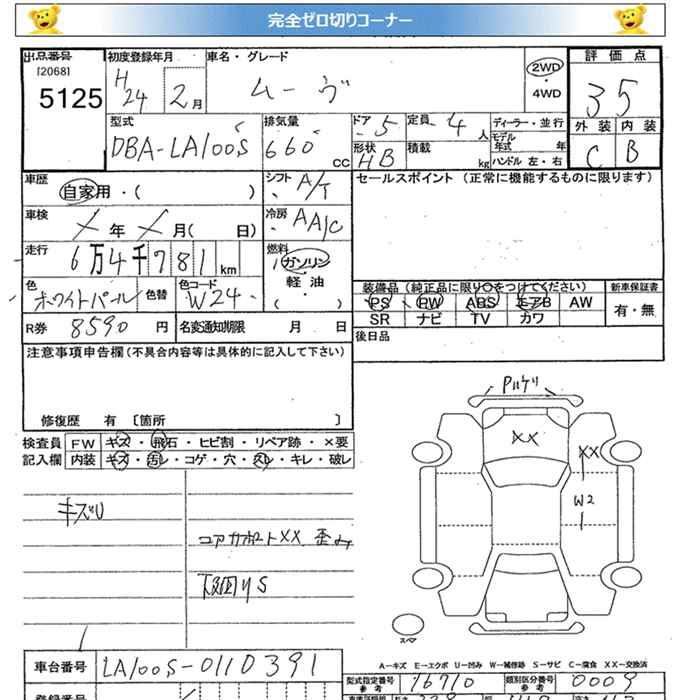 完全ゼロ切りコーナー
出品番号 初度登録年月 車名・グレード 評価点
[2068]
5125 H24 2月 ムーヴ 2WD ・ 4WD 35
型式 排気量 ドア 定員 ディーラー・並行 外装 内装
DBA-LA100S 660 CC 5 4人 モデル年式 年 C B
形状 HB 積載 kg ハンドル 左・右
車歴 自家用・( ) シフト A/T セールスポイント (正常に機能するものに限ります)
車検 年 月( 日) 冷房 AAC
走行 6万4千781km 燃料 ガソリン・軽油 ( )
色 ホワイトパール 色替 色コード W24
装備品 (純正品に限り○をつけてください) 新車保証書
PS PW ABS エアB AW 有・無
SR ナビ TV カワ
R券 8590 円 名変通知期限 月 日 後日品
注意事項申告欄 (不具合内容等は具体的に記入して下さい)
修復歴 有 [箇所 ]
検査員 FW キズ・飛石・ヒビ割・リペア跡・×要
記入欄 内装 キズ・汚レ・コゲ・穴・スレ・キレ・破レ
キズU
コアサポートXX 歪み
下回りS
Pハゲリ
XX
XX
W2
スペア
A-キズ E-エクボ U-凹み W-補修跡 S-サビ C-腐食 XX-交換済
車台番号 LA100S-0110391
型式指定番号 参考 16710 類別区分番号 参考 0009